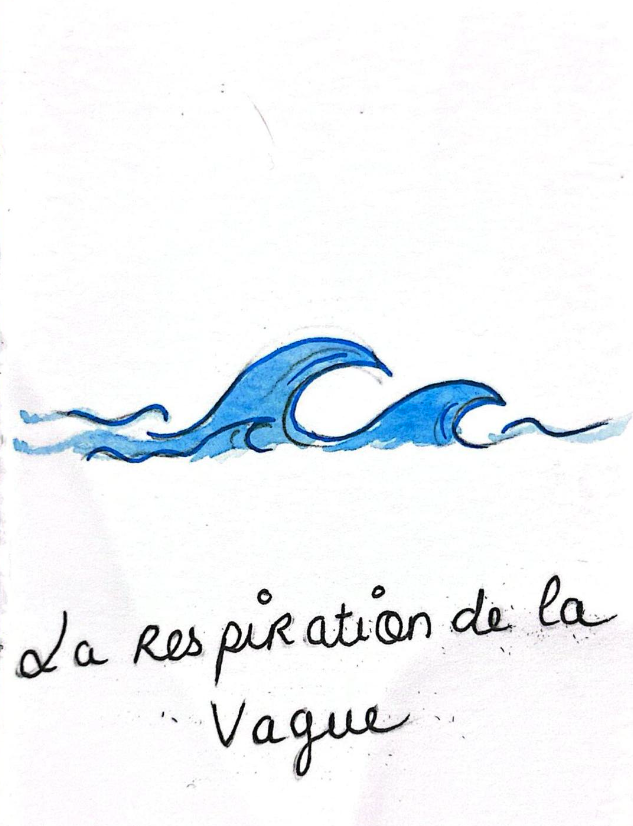 La Respiration de la
Vague